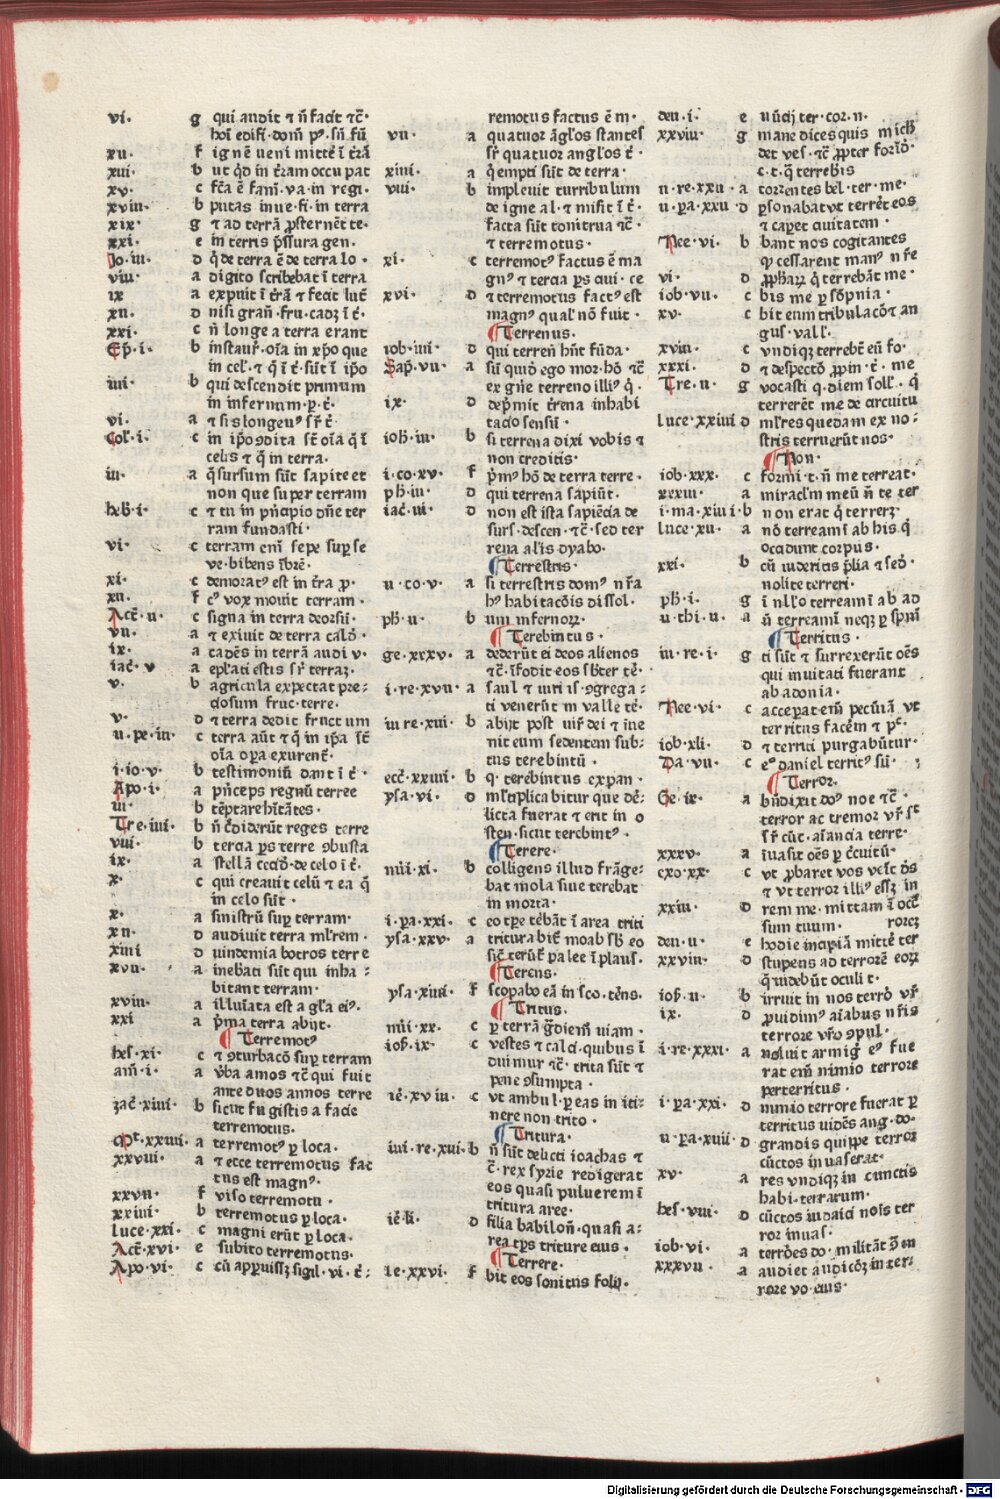 vi. g qui audit ⁊ n̄ facit ⁊c̄.
hoī edifi. domū p⁹. sū fū
xu. f ignē ueni mittē ī t̄rā
xui. b ut q̄d in t̄ram occu pat
xv. c fc̄a ē fam̄. va. in regi.
xviii. b putas inue. fi. in terra
xix. g ⁊ ad terrā p̱sternēt te.
xxi. e in terris p̄ssura gen.
Jo. iii. d q̄ de terra ē de terra lo.
viii. a digito scribebat ī terra
ix a expuit ī t̄rā ⁊ fecit lut̄
xii. d nisi gran̄. fru. cadz ī t̄.
xxi. c n̄ longe a terra erant
Ep̄. i. b instaur̄. oīa in xp̄o que
in cel̄. ⁊ q̄ ī t̄. sūt ī ip̄o
iiii. b qui descendit primum
in infernum. p. t̄.
vi. a ⁊ sis longeu⁹ sr̄ t̄.
Col̄. i. c in ip̄o ꝯdita st̄ oīa q̄ ī
celis ⁊ q̄ in terra.
iii. a q̄ sursum sūt sapite et
non que super terram
heb̄. i. c ⁊ tu in pn̄cipio dn̄e ter
ram fundasti.
vi. c terram em̄ sepe sup̱ se
ve. bibens ībrē.
xi. c demorat⁹ est in t̄ra p̱.
xii. f c⁹ vox mouit terram.
Act̄. ii. c signa in terra deorsū.
vii. a ⁊ exiuit de terra cald̄.
ix. a cadēs in terrā audi v.
iac̄. v a epl̄ati estis sr̄ terraz.
v. b agricula expectat pre⸗
ciosum fruc. terre.
v. d ⁊ terra dedit fructum
ii. pe. iii. c terra aūt ⁊ q̄ in ip̄a st̄
oīa op̱a exurent̄.
i. io. v. b testimoniū dant ī t̄.
Apo. i. a pn̄ceps regnū terre
iii. b tēptare hītātes.
Tre. iiii. b n̄ c̄diderūt reges terre
viii. b tercia p̱s terre ꝯbusta
ix. a stellā cecid̄. de celo ī t̄.
x. c qui creauit celū ⁊ ea q̄
in celo sūt.
x. a sinistrū sup̱ terram.
xii. d audiuit terra ml̄rem.
xiiii d uindemia botros terre
xvii. a inebati sūt qui inha⸗
bitant terram.
xviii. a illuīata est a gl̄a ei⁹.
xxi a p̄ma terra abijt.
¶ Terremot⁹
hes̄. xi. c ⁊ ꝯturbacō sup̱ terram
am̄. i. a v̄ba amos ⁊c̄ qui fuit
ante duos annos terre
zac̄. xiiii. b sicut fugistis a facie
terremotus.
Mt̄. xxiiii. a terremot⁹ p̱ loca.
xxvii. a ⁊ ecce terremotus fac
tus est magn⁹.
xxvii. f viso terremotu.
xxiiii. b terremotus p̱ loca.
luce. xxi. c magni erūt p̱ loca.
Act̄. xvi. e subito terremotus.
Apo. vi. c cū app̱uissz sigil. vi. t̄:
remotus factus ē m.
vii. a quatuor āgl̄os stantes
sr̄ quatuor angl̄os t̄.
xiiii. a q̄ empti sūt de terra.
viii. b impleuit turribulum
de igne al. ⁊ misit ī t̄.
facta sūt tonitrua ⁊c̄.
⁊ terremotus.
xi. c terremot⁹ factus ē ma
gn⁹ ⁊ tercia p̱s ciui. ce
xvi. d ⁊ terremotus fact⁹ est
magn⁹ qual̄ nō fuit.
¶ Terrenus.
iob. iiii. d qui terren̄ hn̄t fūda.
Sap̄. vii. a sū quid̄ ego mor. hō ⁊c̄
ex gn̄e terreno illi⁹ q̄.
ix. d dep̄mit t̄rena inhabi
tacio sensū.
ioh̄. iii. b si terrena dixi vobis ⁊
non creditis.
i. co. xv. f p̄m⁹ hō de terra terre.
ph̄. iii. d qui terrena sapiūt.
iac̄. iii. d non est ista sapiēcia de
surs. descen. ⁊c̄. sed ter
rena al̄is dyabo.
¶ Terrestris.
ii. co. v. a si terrestris dom⁹ nr̄a
h⁹ habitacōis dissol.
ph̄. ii. b um infernoꝝ.
¶ Terebintus.
ge. xxxv. a dederūt ei deos alienos
⁊c̄. īfodit eos sb̄ter tē.
i. re. xvii. a saul ⁊ uiri isr̄. ꝯgrega⸗
ti venerūt in valle tē.
iii re. xiii. b abijt post uir̄ dei ⁊ īue
nit eum sedentem sub⸗
tus terebintū.
ecc̄. xxiiii. b q̄. terēbintus expan.
ysa. vi. d ml̄tiplicabitur que dē⸗
licta fuerat ⁊ erit in o
sten. sicut terebint⁹.
¶ Terere.
nūi. xi. b colligens illud frāge⸗
bat mola siue terebat
in morta.
i. p̱a. xxi. c eo tp̱e tēbāt ī area triti
ysa. xxv. a tritura bit̄ moab sb̄ eo
sic̄ terūt̄ palee ī plaus̄.
¶ Terens.
ysa. xiiii. f scopabo eā in sco. tēns.
¶ Tritus.
nūi. xx. c p̱ terrā g̱diem̄ uiam.
ioſ̄. ix. c vestes ⁊ calci. quibus ī
duimur ⁊c̄. trita sūt ⁊
pene ꝯsumpta.
iē. xviii. c vt ambul. p̱ eas in iti⸗
nere non trito.
¶ Tritura.
iiii. re. xiii. b n̄ sūt delicti ioachas ⁊
c̄. rex syrie redigerat
eos quasi puluerem ī
tritura aree.
iē. li. d filia babilon̄. quasi a⸗
rea tp̱s triture eius.
¶ Terrere.
le. xxvi. f bit eos sonitus folij.
deu. i. e nūcij ter. cor. n.
xxviii. g mane dices quis mich̄
det ves̄. ⁊c̄ p̱pter forīd̄.
c. t. q̄ terrebis
ii. re. xxii. a torrentes bel. ter. me.
ii. p̱a. xxxii d p̱sonabat vt terrēt eos
⁊ cap̱et ciuitatem.
Nee. vi. b bant nos cogitantes
qꝫ cessarent man⁹ nr̄e
vi. d p̱ph̄aꝝ q̄ terrebāt me.
iob. vii. c bis me p̱ sōpnia.
xv. c bit eum tribulacō ⁊ an
gus̄. vall̄.
xviii. c vndiqꝫ terrebt̄ eū fo.
xxxi. d ⁊ despectō p̱pin. t̄. me
Tre. ii. g vocasti q. diem soll̄. q̄
terrerēt me de circuitu
luce. xxiiii d ml̄res quedam ex no⸗
stris terruerūt nos.
¶ Non.
iob. xxx. c formi. t. n̄ me terreat.
xxxiii. a miraclm̄ meū n̄ te ter
i. ma. xiiii. b non erat q̄ terreꝫ.
luce. xii. a nō terreamī ab his q̄
occidunt corpus.
xxi. b cū uideritis p̄lia ⁊ sed̄.
nolite terreri.
ph̄. i. g ī nll̄o terreamī ab ad
ii. thi. ii. a n̄ terreamī neqꝫ p̱ spm̄
¶ Territus.
iii. re. i. g ti sūt ⁊ surrexerūt oēs
qui inuitati fuerant
ab adonia.
Nee. vi. c accep̱at em̄ pecūiā vt
territus facēm ⁊ pc̄.
iob. xli. d ⁊ territi purgabūtur.
Da. vii. c e⁹ daniel territ⁹ sū.
¶ Terror.
Ge. ix. a bn̄dixit do⁹ noe ⁊c̄.
terror ac tremor vr̄ st̄
sr̄ cūc̄. aīancia terre.
xxxv. a īuasit oēs p̱ c̄cuitū.
exo. xx. c vt p̱baret vos veīt d̄s
⁊ vt terror illi⁹ essꝫ in
xxiii. d rem me. mittam ī occ̄
sum tuum. rorez
deu. ii. e hodie incipiā mittē ter
xxviii. d stupens ad terrorē eoꝝ
q̄ uidebūt oculi t.
ios̄. ii. b irruit in nos terro⁹ vr̄
ix. d p̱uidim⁹ aīabus nr̄is
terrore vr̄o ꝯpul.
i. re. xxxi. a noluit armig̱ e⁹ fue
rat em̄ nimio terrore
perterritus.
i. p̱a. xxi. d nimio terrore fuerat p̱
territus uidēs ang. do.
ii. p̱a. xvii. d grandis quippe terror
cūctos inuaserat.
xv. a res vndiqꝫ in cunctis
habi. terrarum.
hes̄. viii. d cūctos iudaici nois̄ ter
ror inuas.
iob. vi. a terrōes do. militāt ꝯ m
xxxvii. a audiet audicōꝫ in ter⸗
rore vo. eius.
Digitalisierung gefördert durch die Deutsche Forschungsgemeinschaft - DFG